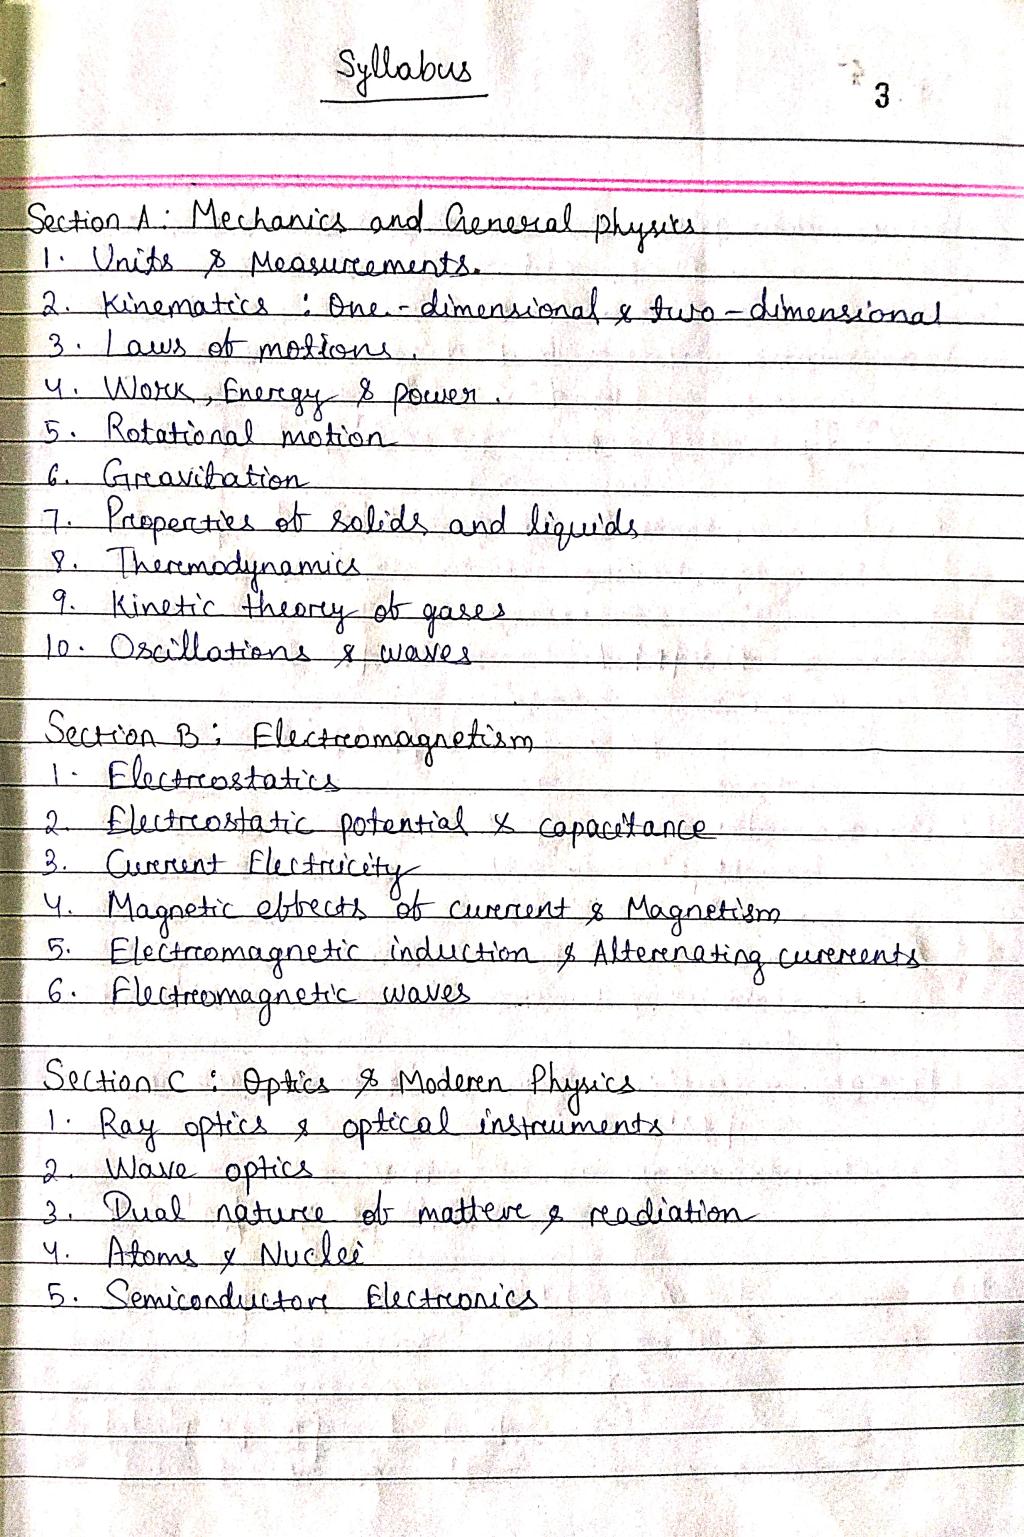 Syllabus
3
Section A: Mechanics and General physics
1. Units & Measurements.
2. Kinematics : One-dimensional & two-dimensional
3. Laws of motions.
4. Work, Energy & power.
5. Rotational motion
6. Gravitation
7. Properties of solids and liquids
8. Thermodynamics
9. Kinetic theory of gases
10. Oscillations & waves
Section B: Electromagnetism
1. Electrostatics
2. Electrostatic potential & capacitance
3. Current Electricity
4. Magnetic effects of current & Magnetism
5. Electromagnetic induction & Alternating currents
6. Electromagnetic waves
Section C : Optics & Modern Physics
1. Ray optics & optical instruments
2. Wave optics
3. Dual nature of matter & radiation
4. Atoms & Nuclei
5. Semiconductor Electronics